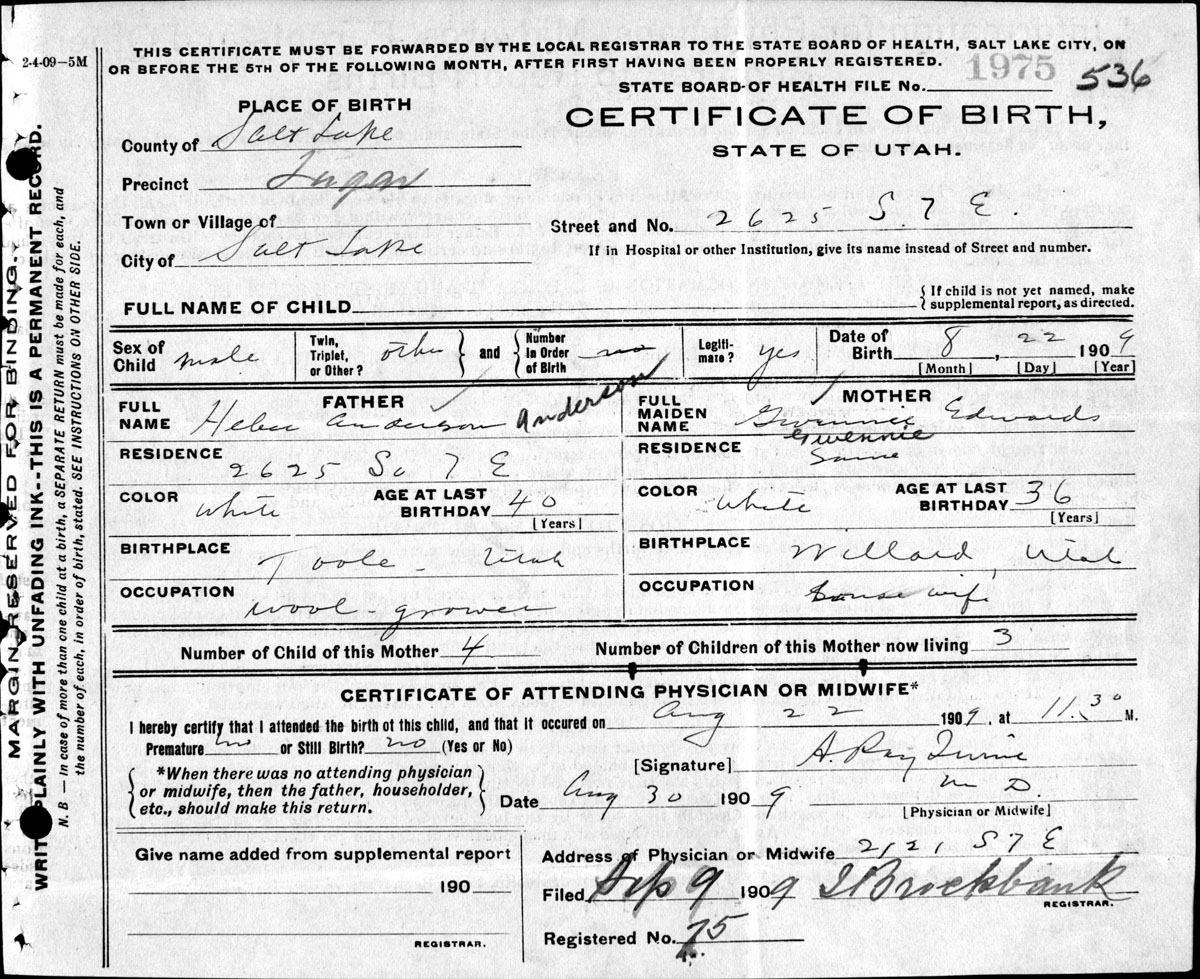 2-4-09—5M
THIS CERTIFICATE MUST BE FORWARDED BY THE LOCAL REGISTRAR TO THE STATE BOARD OF HEALTH, SALT LAKE CITY, ON
OR BEFORE THE 5TH OF THE FOLLOWING MONTH, AFTER FIRST HAVING BEEN PROPERLY REGISTERED.
1975 536
STATE BOARD OF HEALTH FILE No.
PLACE OF BIRTH
CERTIFICATE OF BIRTH,
STATE OF UTAH.
County of Salt Lake
Precinct Sugar
Town or Village of
Street and No. 2625 S 7 E.
City of Salt Lake
If in Hospital or other Institution, give its name instead of Street and number.
FULL NAME OF CHILD
{ If child is not yet named, make
supplemental report, as directed.
Sex of Child male
Twin, Triplet, or Other? other } and { Number In Order of Birth no
Legitimate? yes
Date of Birth 8, 22 1909
[Month] [Day] [Year]
FATHER
FULL NAME Heber Anderson Anderson
RESIDENCE 2625 So 7 E
COLOR White AGE AT LAST BIRTHDAY 40
[Years]
BIRTHPLACE Toole - Utah
OCCUPATION wool-grower
MOTHER
FULL MAIDEN NAME Gwennie Edwards
Gwennie
RESIDENCE Same
COLOR White AGE AT LAST BIRTHDAY 36
[Years]
BIRTHPLACE Willard, Utah
OCCUPATION house wife
Number of Child of this Mother 4 Number of Children of this Mother now living 3
CERTIFICATE OF ATTENDING PHYSICIAN OR MIDWIFE*
I hereby certify that I attended the birth of this child, and that it occured on Aug 22 1909, at 11.30 M.
Premature no or Still Birth? no (Yes or No)
{ *When there was no attending physician
or midwife, then the father, householder,
etc., should make this return. }
[Signature] A. Ray Irvine
M D.
Date Aug 30 1909
[Physician or Midwife]
Give name added from supplemental report
190
REGISTRAR.
Address of Physician or Midwife 2121 S 7 E
Filed Sep 9 1909 Brockbank
REGISTRAR.
Registered No. 75
MARGIN RESERVED FOR BINDING.
WRITE PLAINLY WITH UNFADING INK--THIS IS A PERMANENT RECORD.
N. B.—In case of more than one child at a birth, a SEPARATE RETURN must be made for each, and
the number of each, in order of birth, stated. SEE INSTRUCTIONS ON OTHER SIDE.